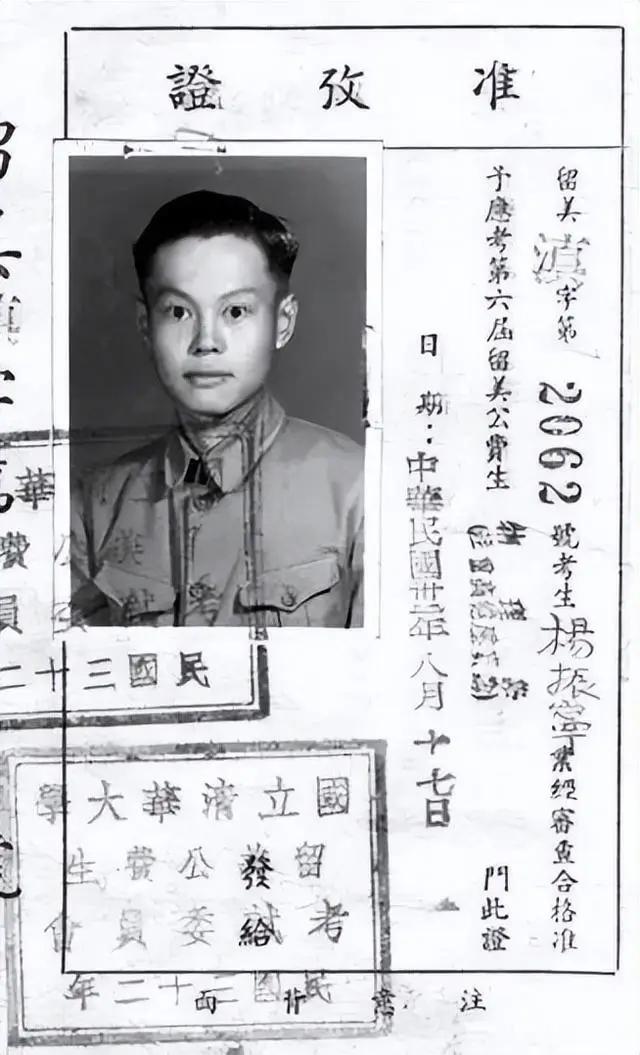 准攷證
留美滇字第2062號考生楊振寧業經審查合格准
予應考第六屆留美公費生
門此證
日期：中華民國卅二年八月十七日
國立清華大學
留美公費生
考試委員會
民國三十二年
發給
注意背面
華
費
員
民國三十二